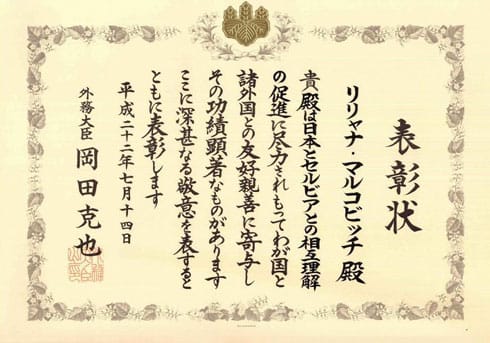 表彰状
リリャナ・マルコビッチ 殿
貴殿は日本とセルビアとの相互理解
の促進に尽力されもってわが国と
諸外国との友好親善に寄与し
その功績顕著なものがあります
ここに深甚なる敬意を表すると
ともに表彰します
平成二十二年七月十四日
外務大臣 岡田克也